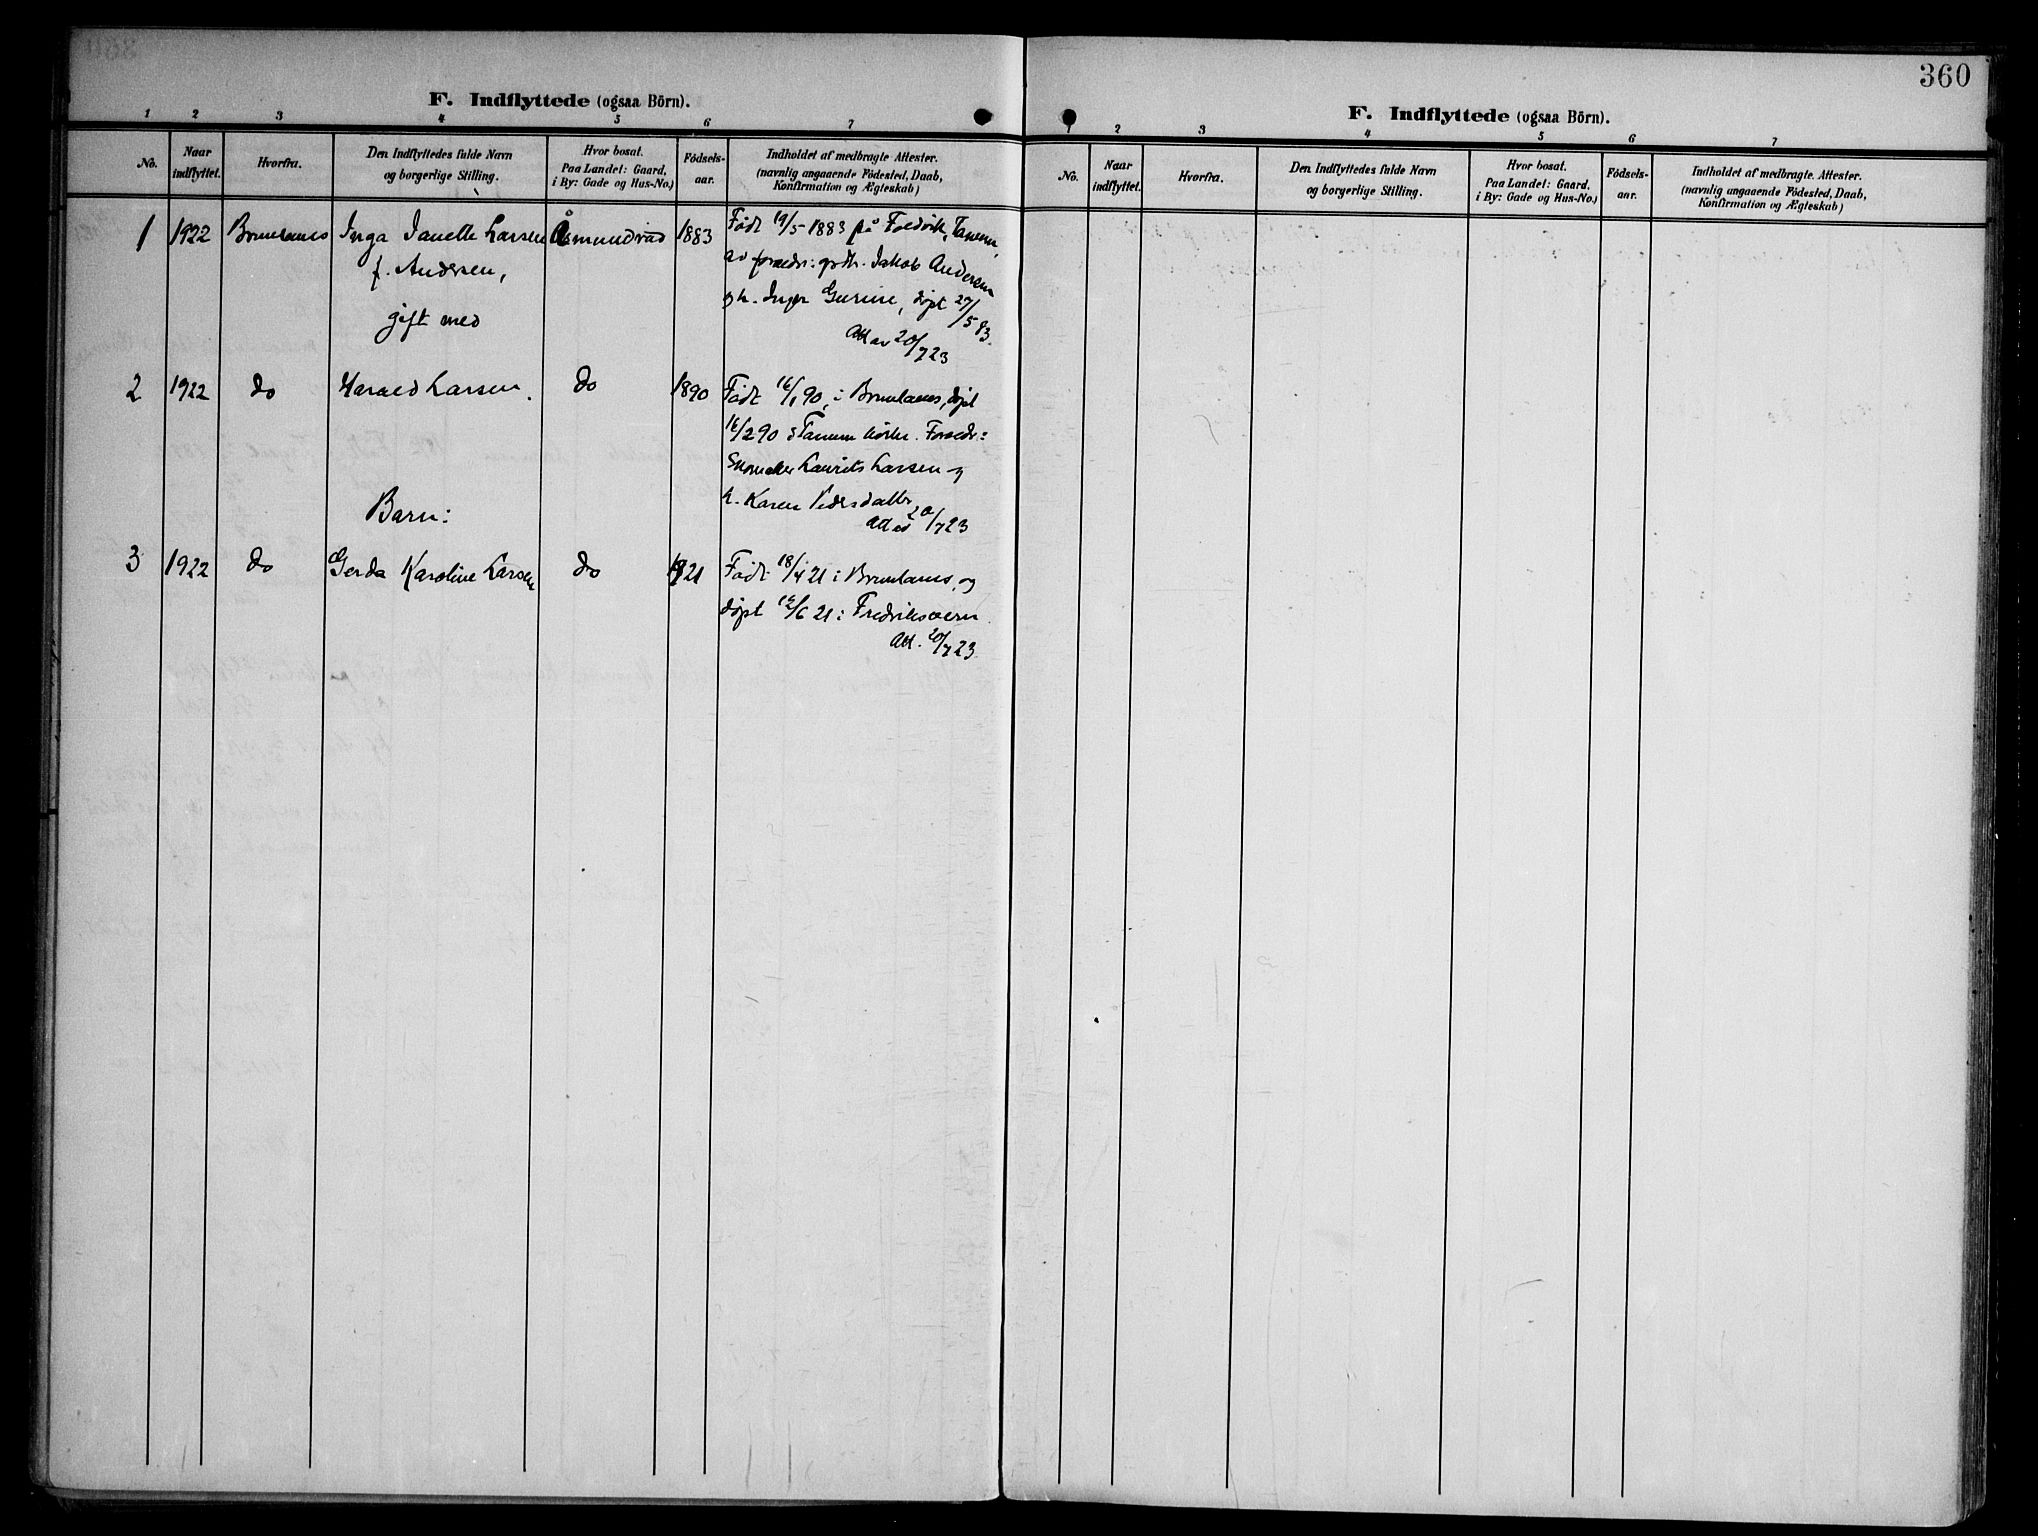 360
F. Indflyttede (ogsaa Börn).
1 2 3 4 5 6 7
No.
Naar indflyttet.
Hvorfra.
Den Indflyttedes fulde Navn
og borgerlige Stilling.
Hvor bosat.
Paa Landet: Gaard,
i By: Gade og Hus-No.)
Födsels-
aar.
Indholdet af medbragte Attester.
(navnlig angaaende Födested, Daab,
Konfirmation og Ægteskab)
1 1922 Brunlanes Inga Janelle Larsen Åsmundrød 1883 Født 19/5 1883 på Fredvik, Tanum,
f. Andersen, av foreldr: grdbr. Jakob Andersen
gift med og h. Inger Gurine, døpt 27/5 83.
Att av 20/7 23
2 1922 do Harald Larsen. do 1890 Født 16/1 90, i Brunlanes, døpt
16/2 90 i Tanum kirke. Foreldr:
Skomaker Laurits Larsen og
h. Karen Pedersdatter
Barn: Att av 20/7 23
3 1922 do Gerda Karoline Larsen do 1921 Født 18/4 21 i Brunlanes, og
døpt 12/6 21 i Fredriksvern.
Att. 20/7 23.
F. Indflyttede (ogsaa Börn).
1 2 3 4 5 6 7
No.
Naar
indflyttet.
Hvorfra.
Den Indflyttedes fulde Navn
og borgerlige Stilling.
Hvor bosat.
Paa Landet: Gaard.
i By: Gade og Hus-No.)
Födsels-
aar.
Indholdet af medbragte. Attester.
(navnlig angaaende Födested, Daab,
Konfirmation og Ægteskab)